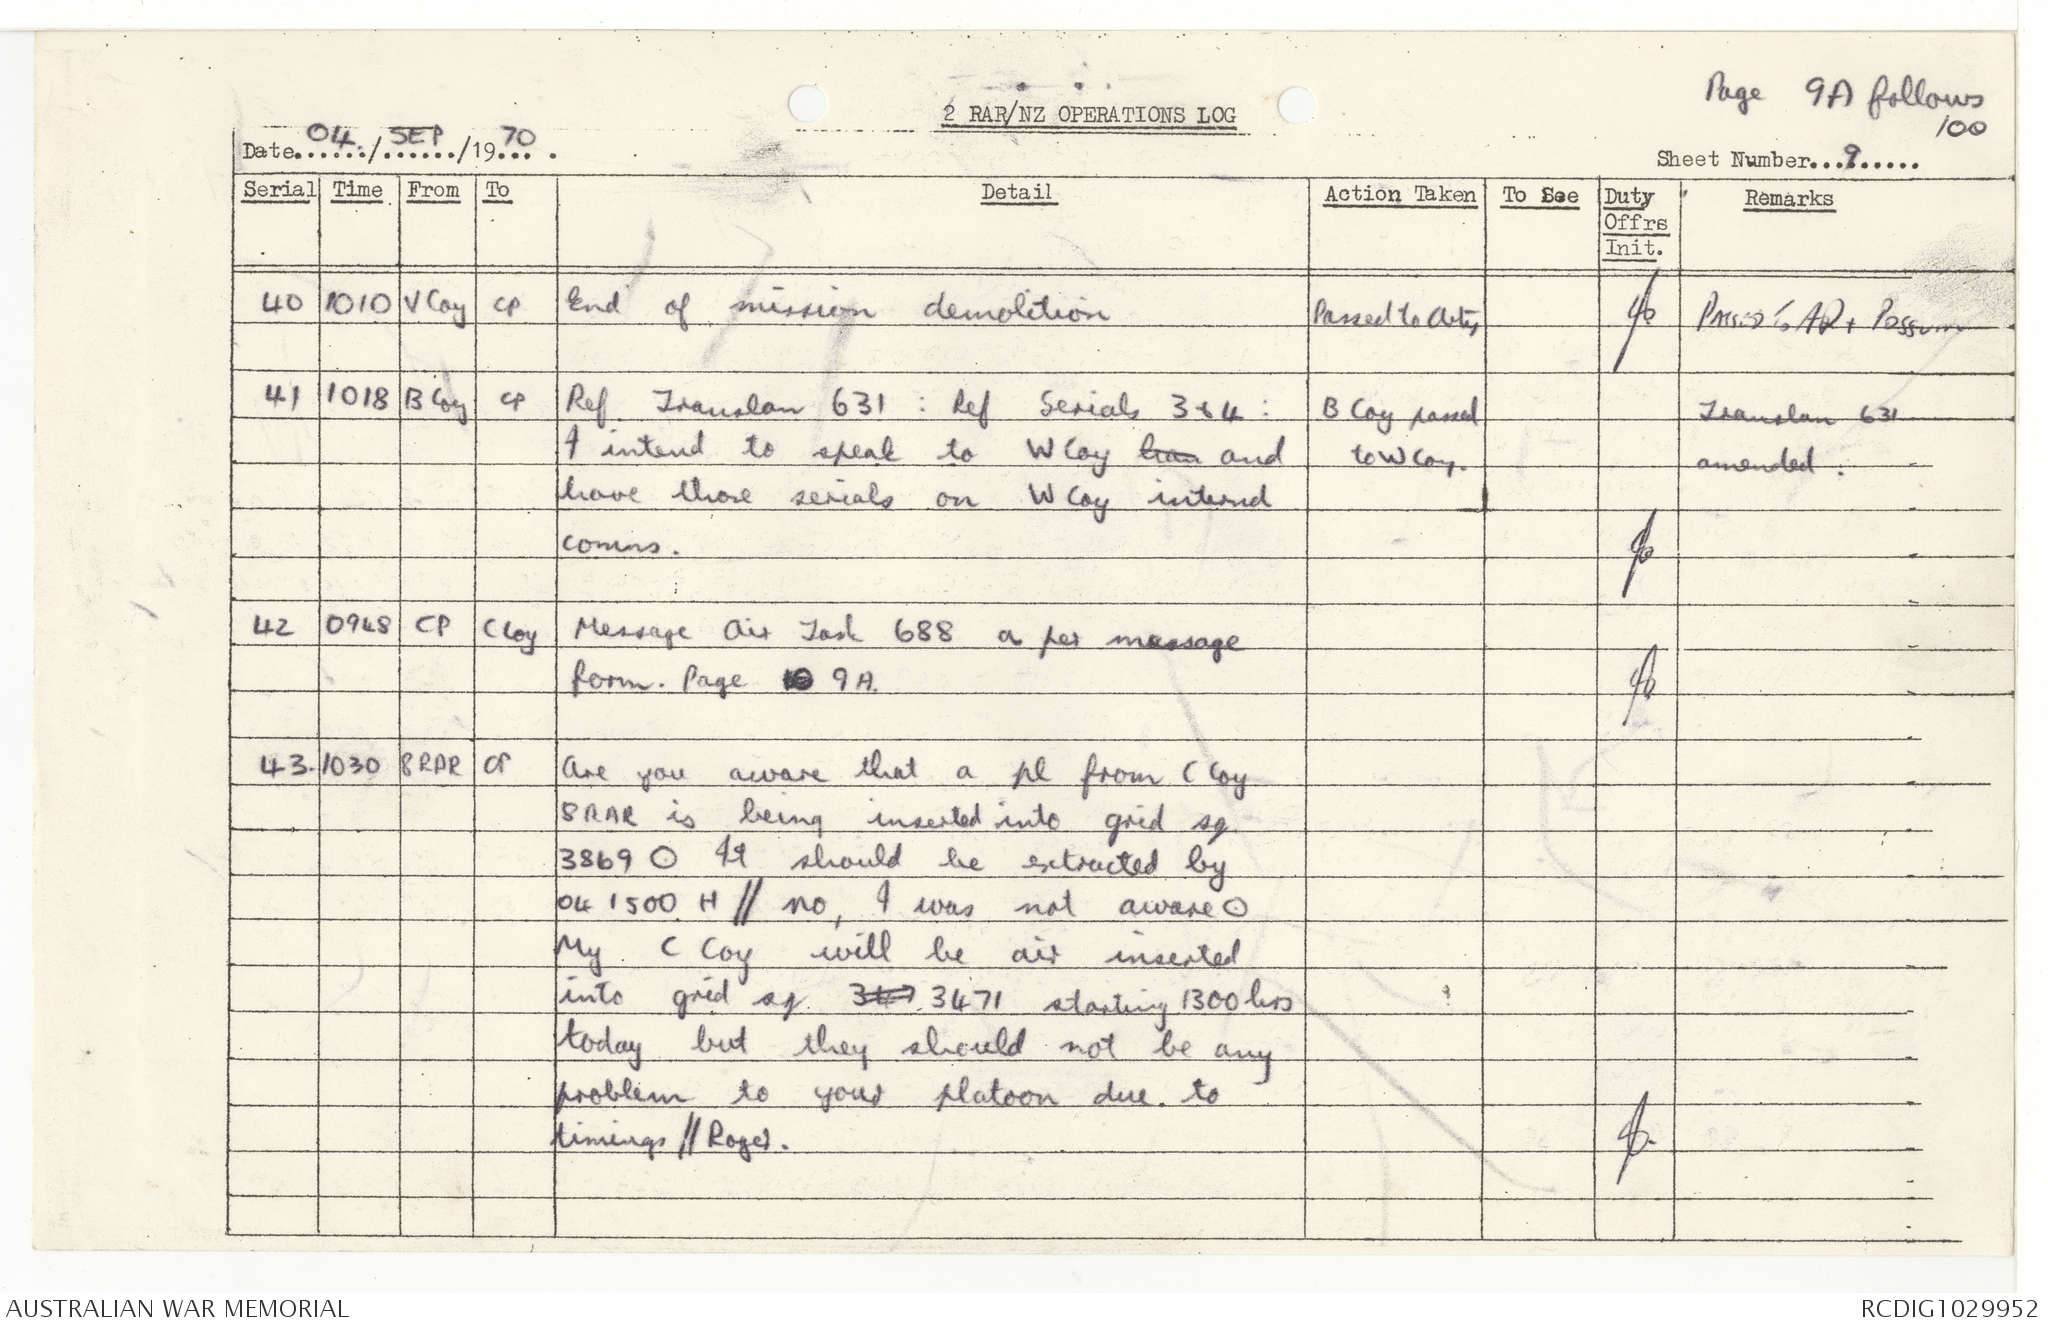 Page 9A follows
100
2 RAR/NZ OPERATIONS LOG
Date 04 / SEP / 1970
Sheet Number 9
Serial Time From To Detail Action Taken To See Duty Offrs Init. Remarks
40 1010 V Coy CP End of mission demolition Passed to Arty Passed to AO + Possum
41 1018 B Coy CP Ref Translan 631 : Ref Serials 3+4 : B Coy passed Translan 631
I intend to speak to W Coy and to W Coy. amended.
have those serials on W Coy internal
comms.
42 0948 CP C Coy Message Air Task 688 as per message
form. Page 9A.
43. 1030 8RAR CP Are you aware that a pl from C Coy
8RAR is being inserted into grid sq
3869 O It should be extracted by
041500 H // no, I was not aware O
My C Coy will be air inserted
into grid sq 3471 starting 1300 hrs
today but they should not be any
problem to your platoon due to
timings // Roger.
AUSTRALIAN WAR MEMORIAL
RCDIG1029952